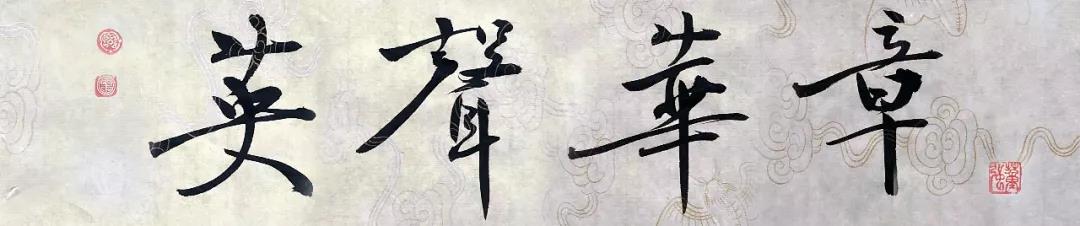 英聲華章